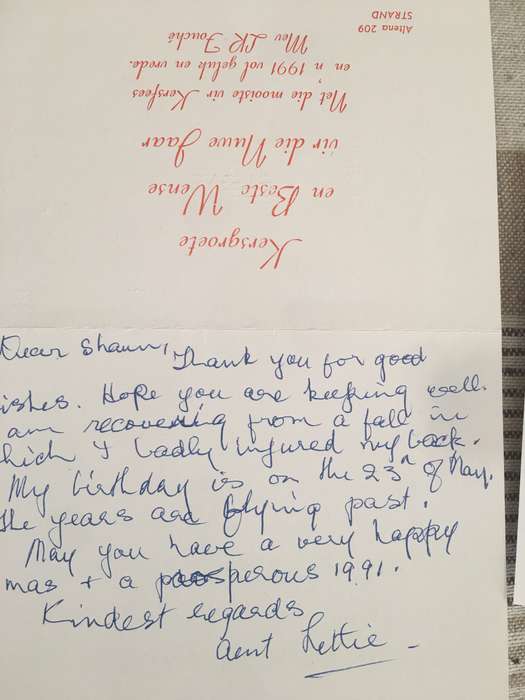 Kersgroete
en Beste Wense
vir die Nuwe Jaar
Net die mooiste vir Kersfees
en 'n 1991 vol geluk en vrede.
Mev LR Fouché
Altena 209
STRAND
Dear Shaun, Thank you for good
ishes. Hope you are keeping well.
am recovering from a fall in
hich I badly injured my back.
My birthday is on the 23rd of May.
the years are flying past.
May you have a very happy
mas + a prosperous 1991.
Kindest regards
Aunt Lettie